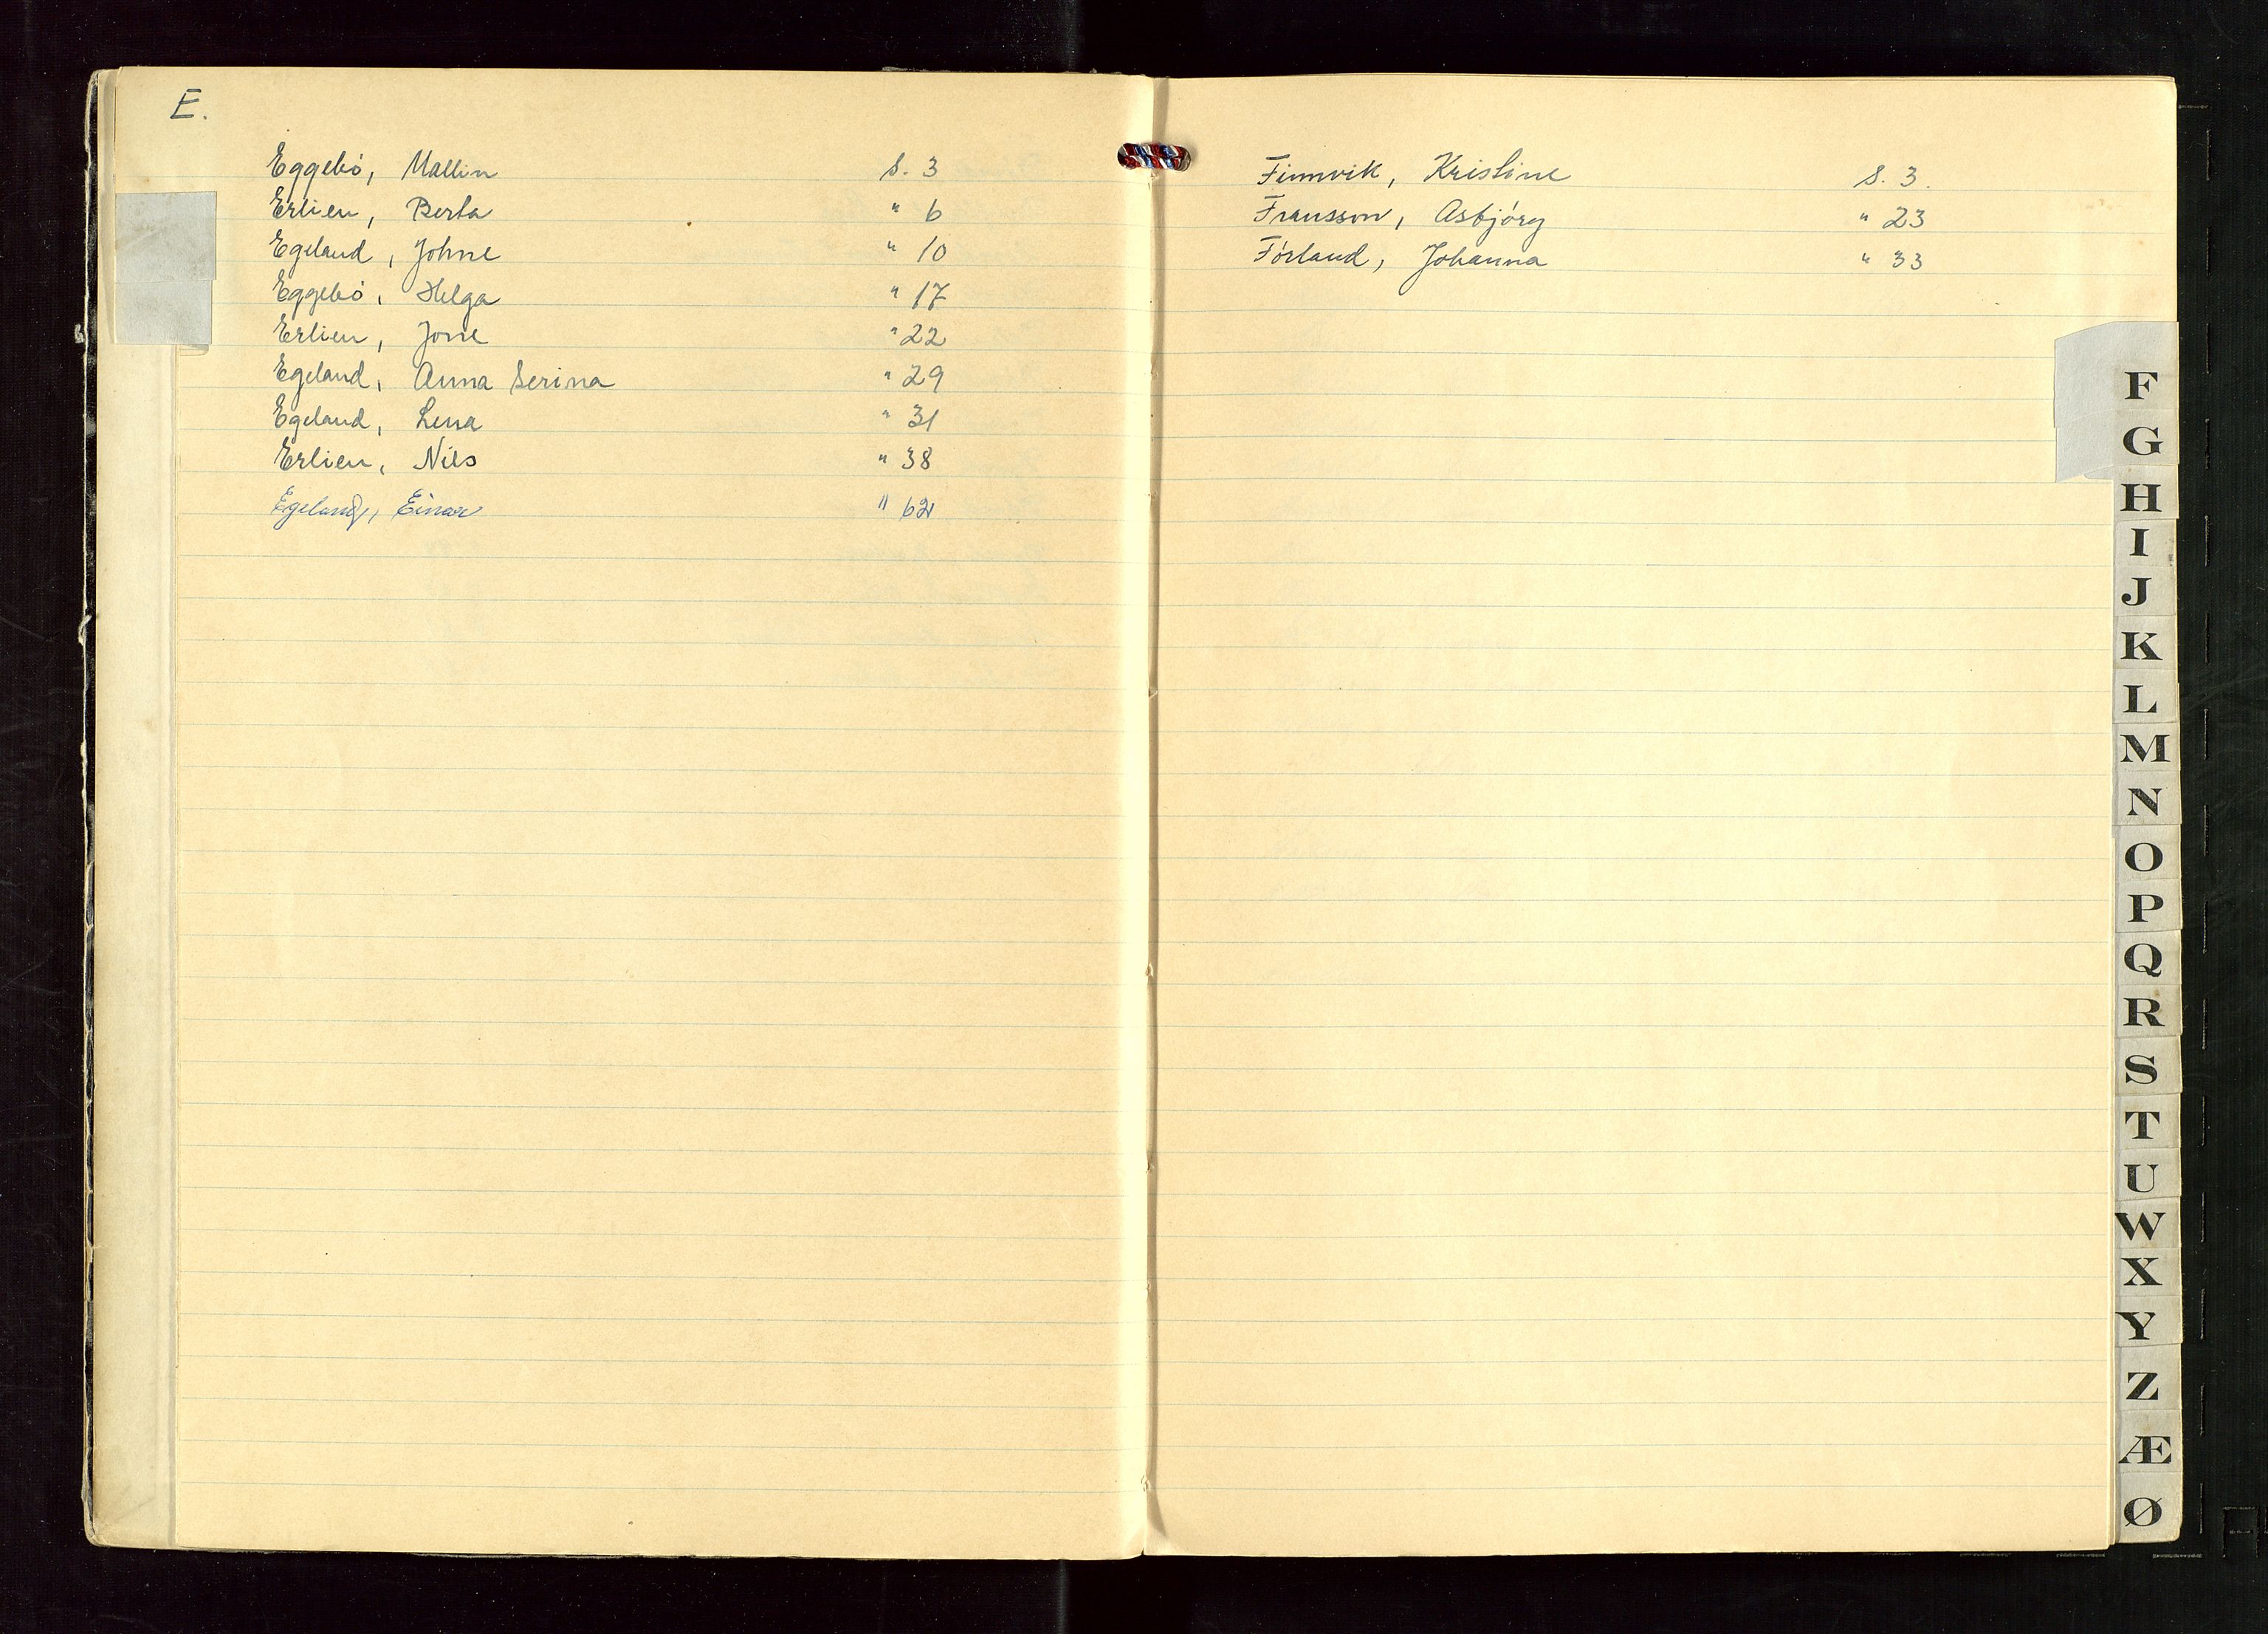 E.
Eggebö, Mallin S. 3
Erlien, Berta " 6
Egeland, Johne " 10
Eggebö, Helga " 17
Erlien, Jone " 22
Egeland, Anna Serina " 29
Egeland, Lena " 31
Erlien, Nils " 38
Egeland, Einar " 62
Finnvik, Kristine S. 3.
Fransson, Asbjörg " 23
Förland, Johanna " 33
F
G
H
I
J
K
L
M
N
O
P
Q
R
S
T
U
W
X
Y
Z
Æ
Ø